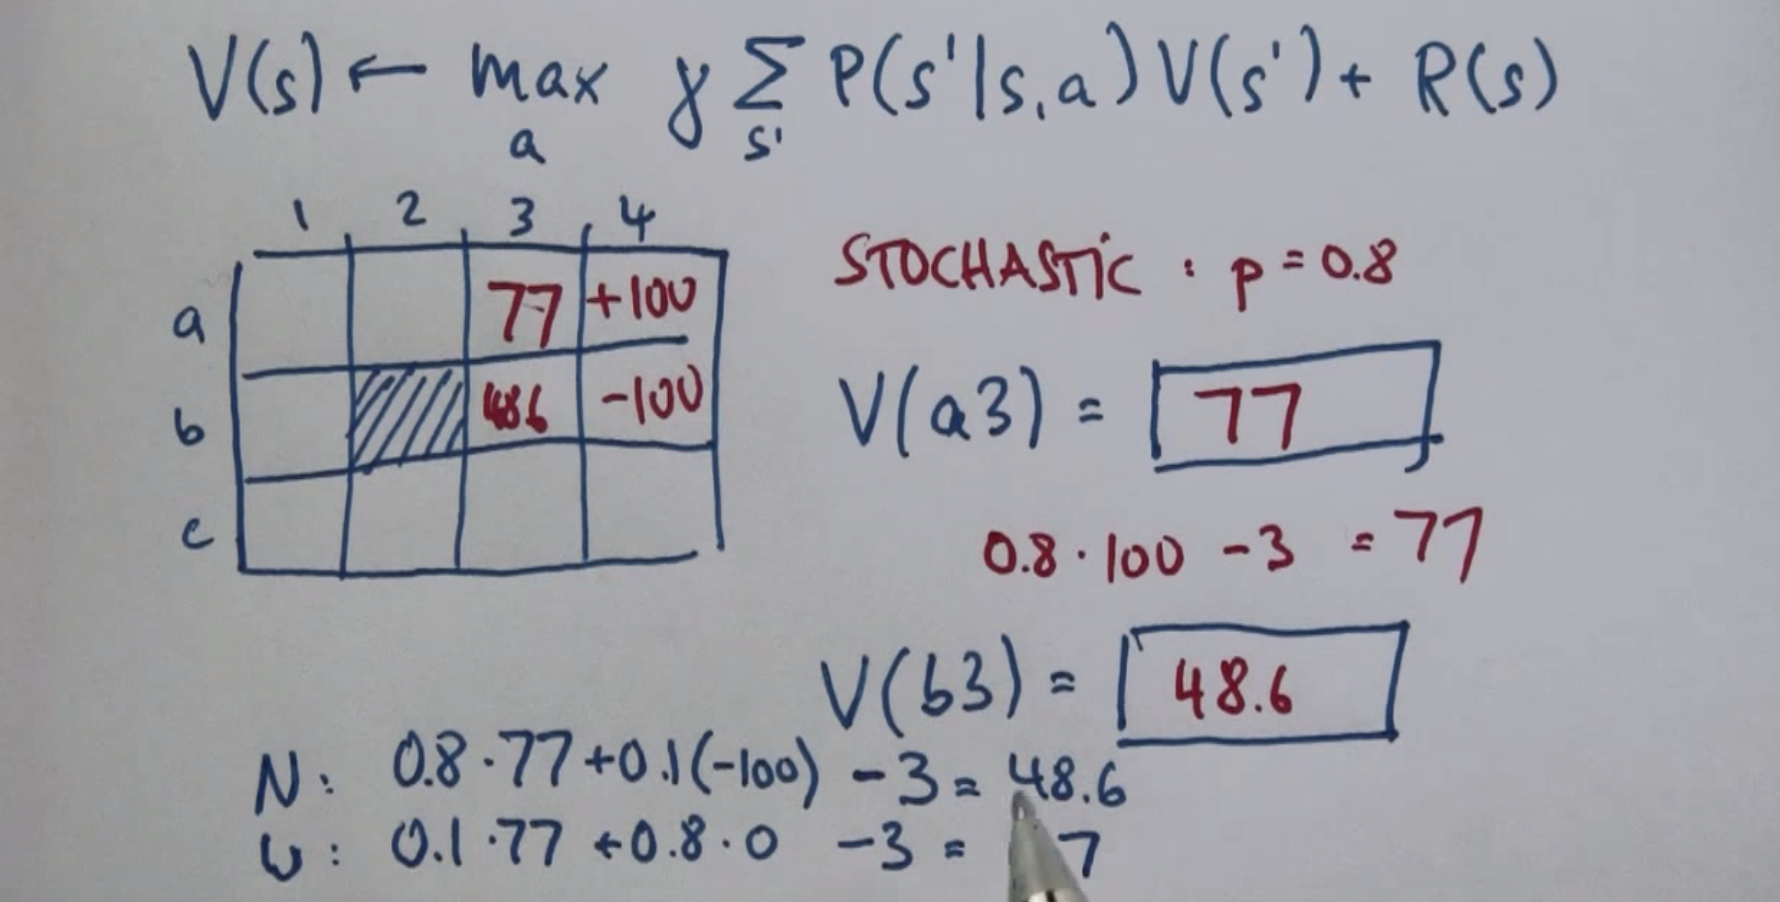 V(s) ← max γ Σ P(s'|s,a) V(s') + R(s)
a s'
1 2 3 4
a 77 +100
b 48.6 -100
c
STOCHASTIC : p = 0.8
V(a3) = 77
0.8 · 100 - 3 = 77
V(b3) = 48.6
N: 0.8 · 77 + 0.1(-100) - 3 = 48.6
W: 0.1 · 77 + 0.8 · 0 - 3 = 7